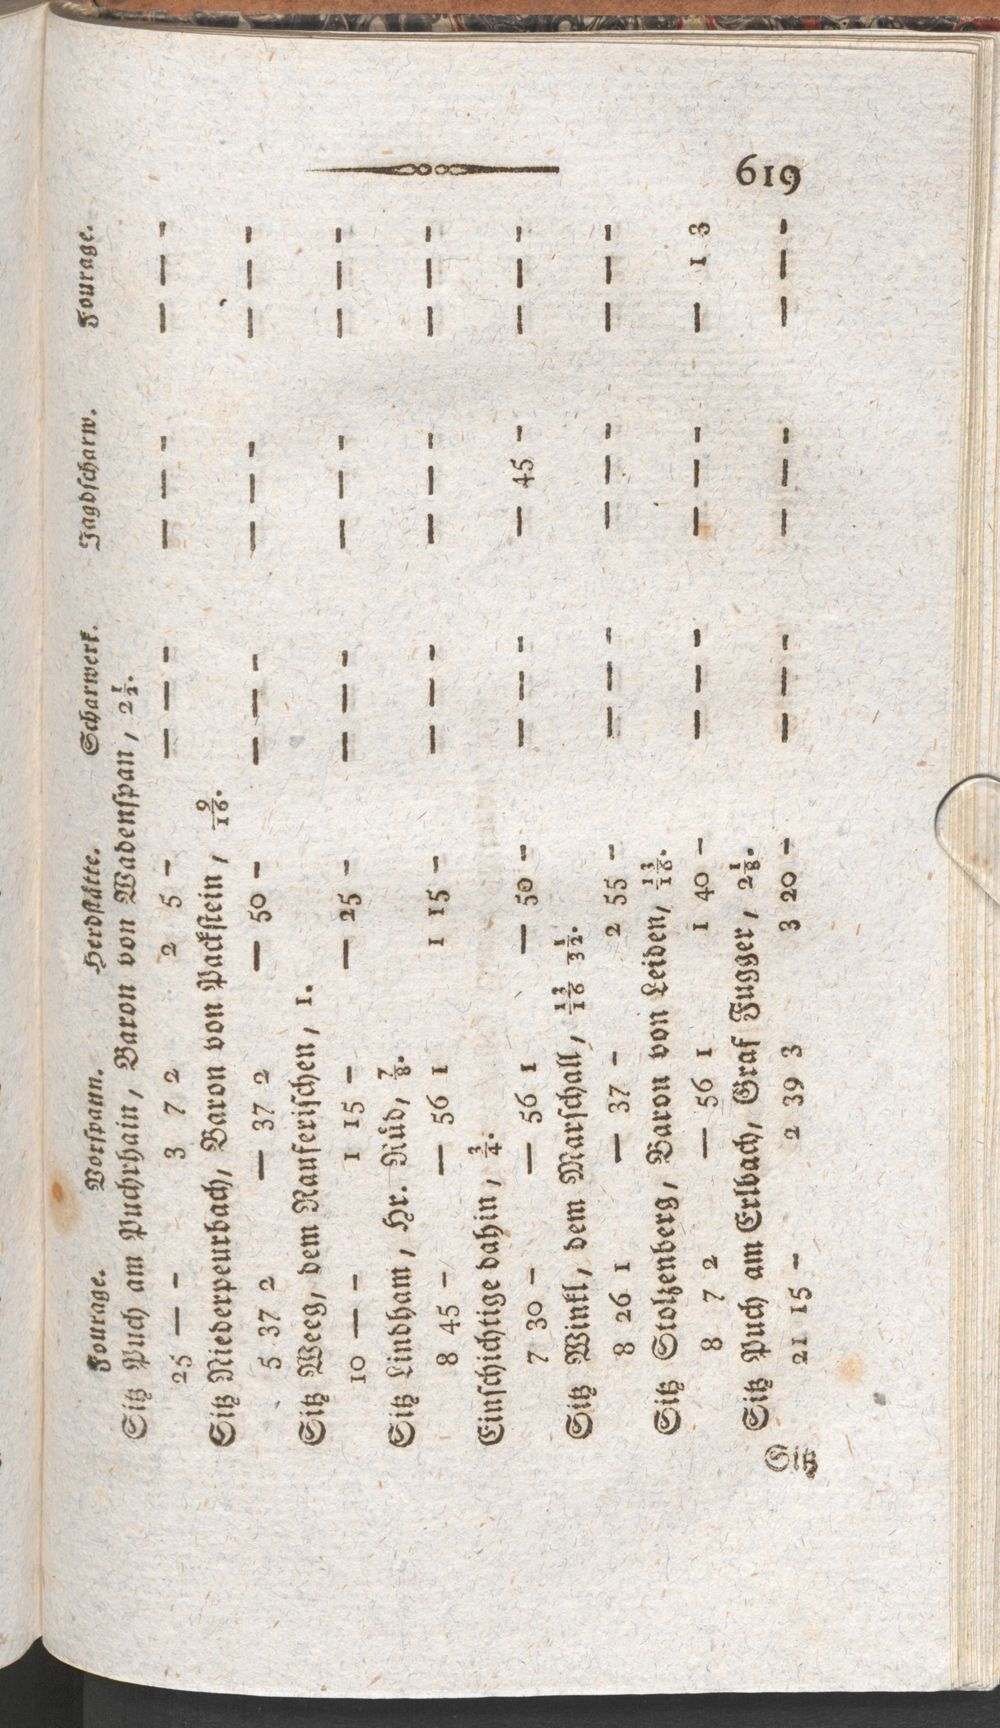 619
Fourage. Vorspann. Herdstätte. Scharwerk. Jagdscharw. Fourage.
Sitz Puch am Puchrhain, Baron von Wadenspan, 2 1/2.
25 — - 3 7 2 2 5 - — — - — — - — — -
Sitz Niederpeurbach, Baron von Packstein, 9/16.
5 37 2 — 37 2 — 50 - — — - — — - — — -
Sitz Weeg, dem Mauserischen, 1.
10 — - 1 15 - — 25 - — — - — — - — — -
Sitz Lindham, Hr. Rüd, 7/8.
8 45 - — 56 1 1 15 - — — - — — - — — -
Einschichtige dahin, 3/4.
7 30 - — 56 1 — 50 - — — - — 45 - — — -
Sitz Winkl, dem Marschall, 13/16 1/32.
8 26 1 — 37 - 2 55 - — — - — — - — — -
Sitz Stolzenberg, Baron von Leiden, 13/16.
8 7 2 — 56 1 1 40 - — — - — — - — 1 3
Sitz Puch am Erlbach, Graf Fugger, 2 1/8.
21 15 - 2 39 3 3 20 - — — - — — - — — -
Sitz